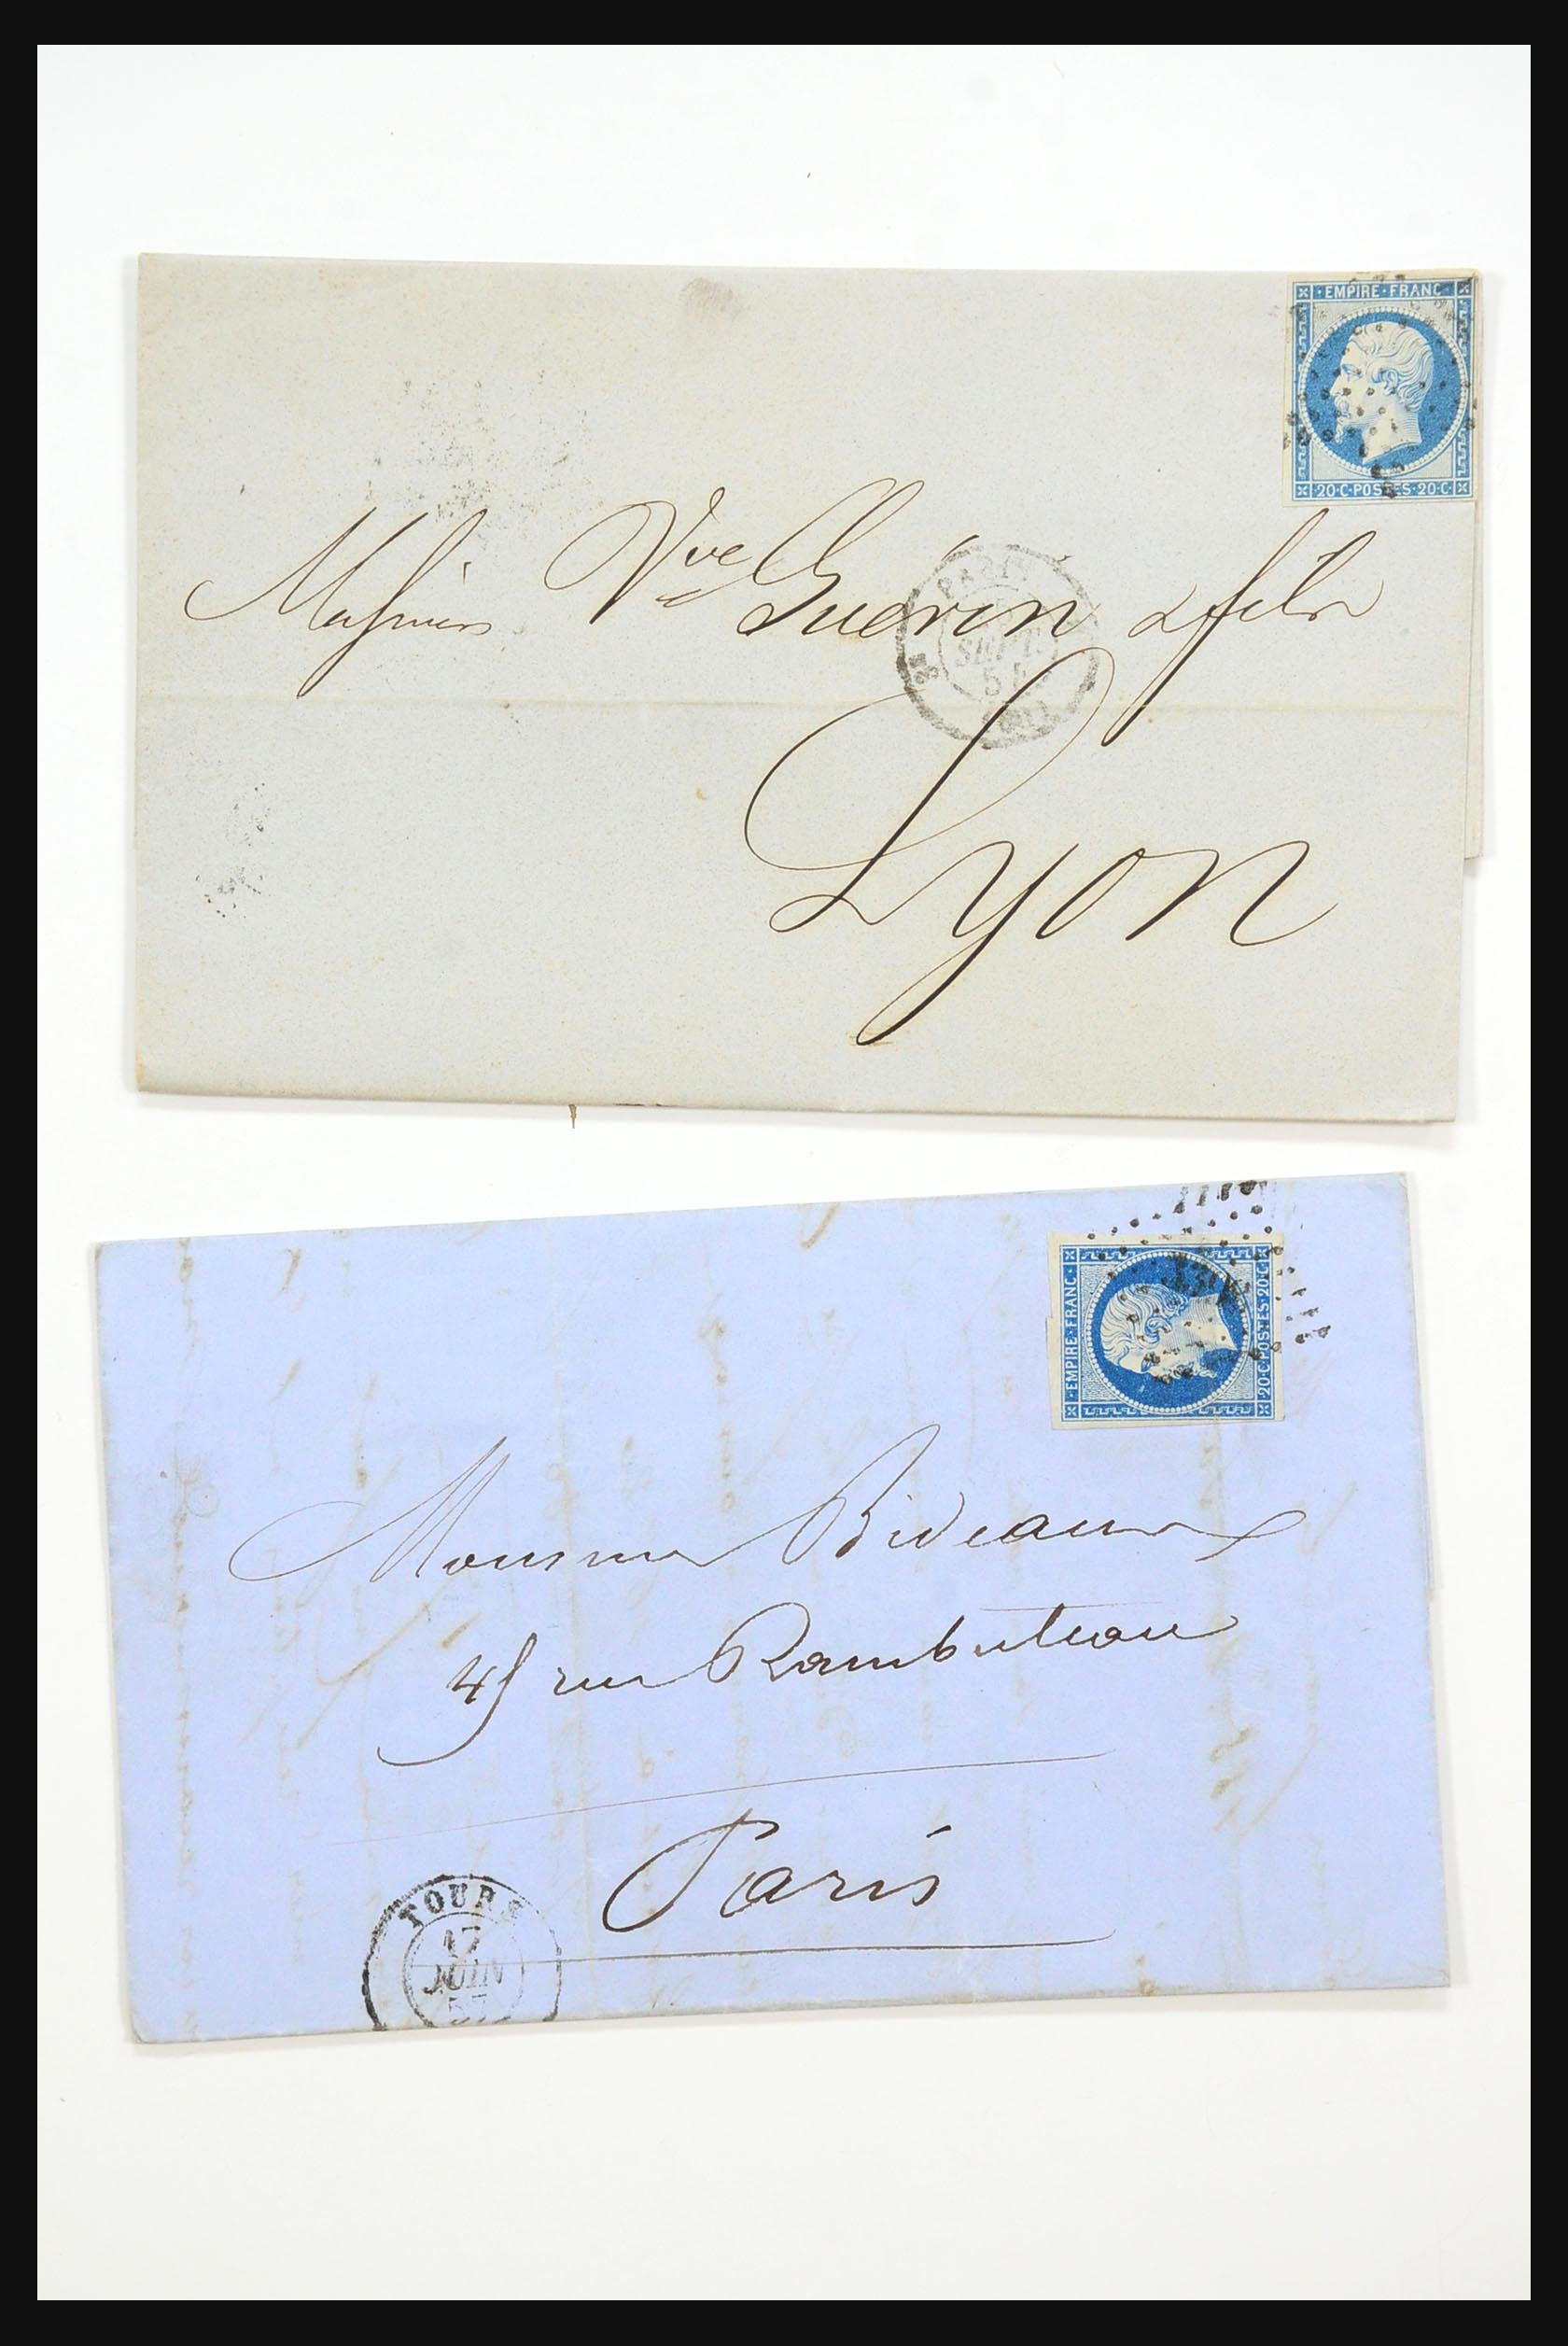 EMPIRE·FRANC
20·C·POSTES·20·C
Messieurs Vve Guérin & fils
PARIS
SEPT.
Lyon
EMPIRE·FRANC·
20·C·POSTES·20·C
Monsieur Bideaux
45 rue Rambuteau
Paris
TOURS
17
JUIN
57